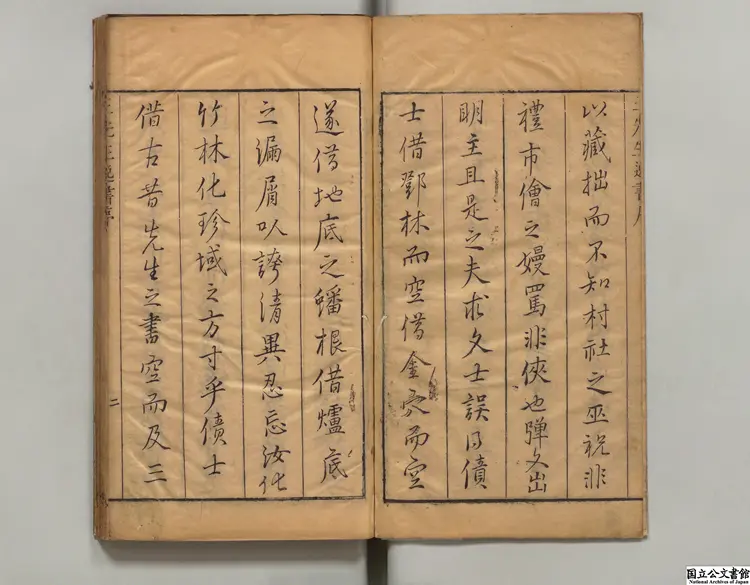 以藏拙而不知村社之巫祝非
禮市儈之嫚罵非俠也彈文出
明主且是之夫求文士誤以債
士借鄧林而空借金穴而空
遂借地底之蟠根借爐底
之漏屑以誇清異忍忘汝化
竹林化珍域之方寸乎債士
借古昔先生之書空而及三
二
国立公文書館
National Archives of Japan